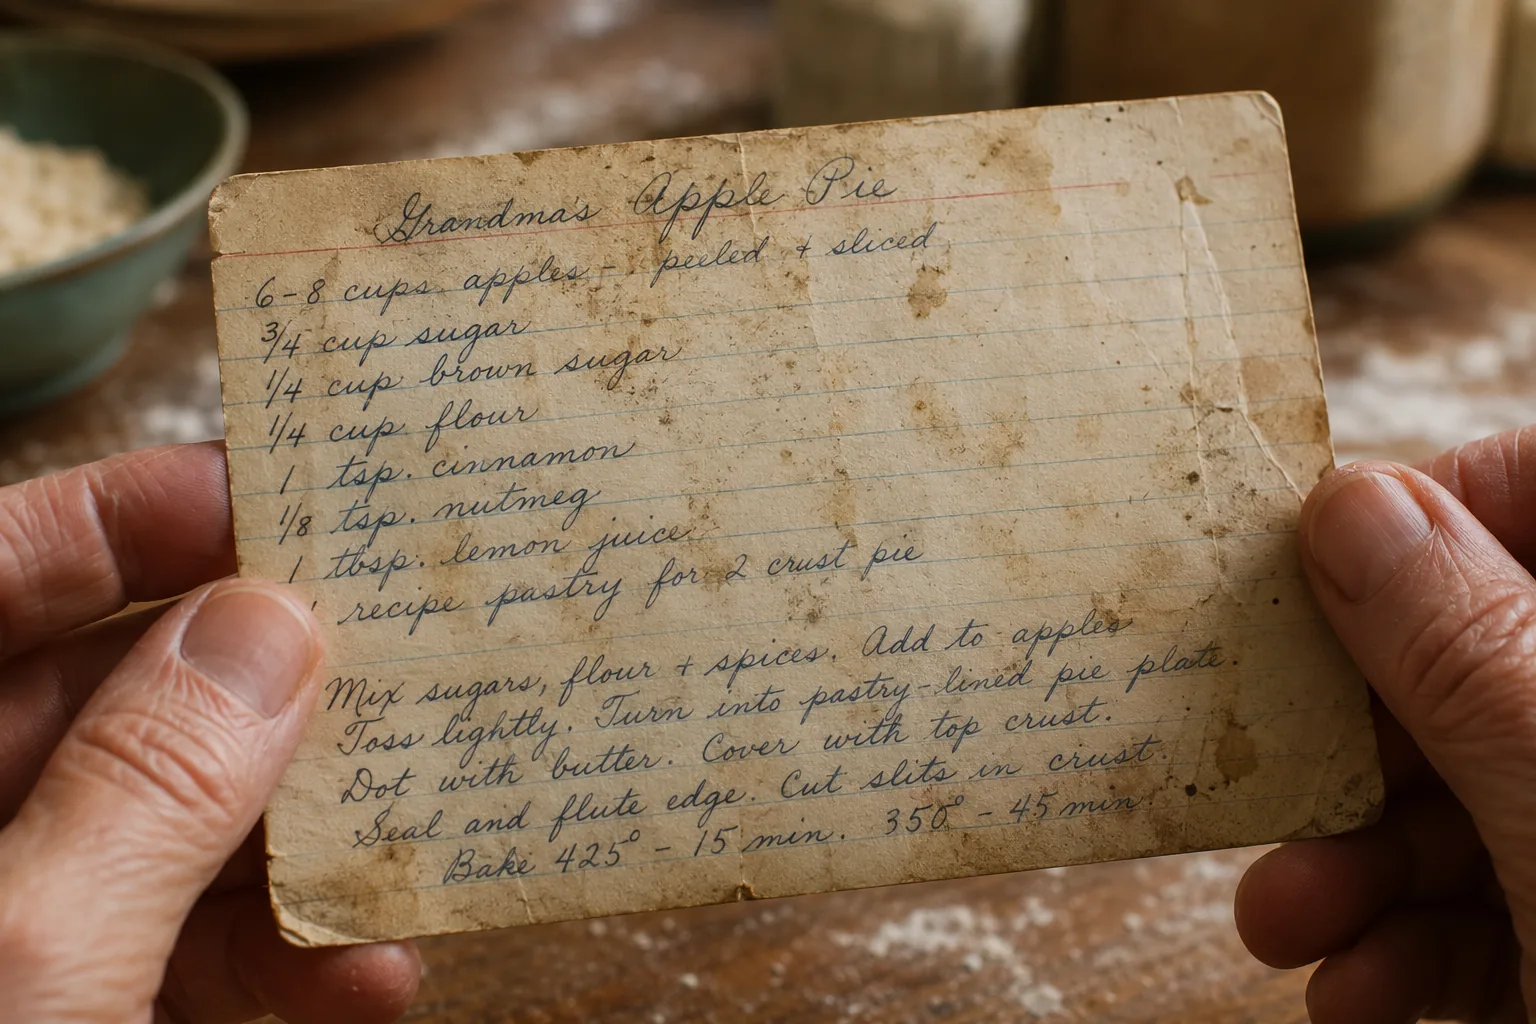 Grandma's Apple Pie
6-8 cups apples - peeled + sliced
3/4 cup sugar
1/4 cup brown sugar
1/4 cup flour
1 tsp. cinnamon
1/8 tsp. nutmeg
1 tbsp. lemon juice
1 recipe pastry for 2 crust pie
Mix sugars, flour + spices. Add to apples
Toss lightly. Turn into pastry-lined pie plate.
Dot with butter. Cover with top crust.
Seal and flute edge. Cut slits in crust.
Bake 425° - 15 min. 350° - 45 min